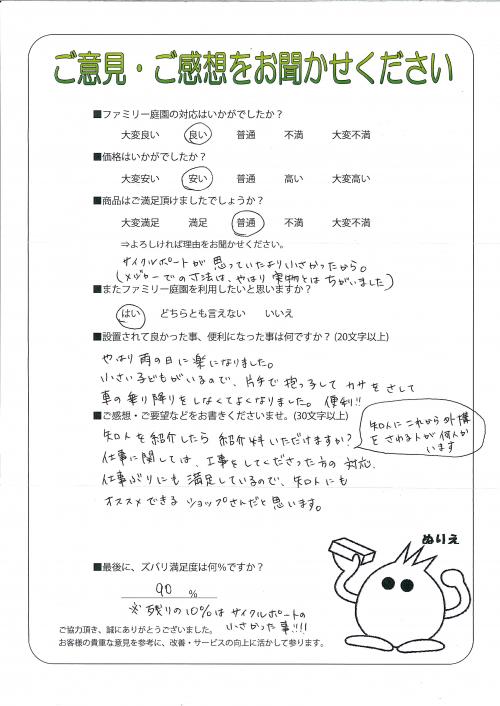 ご意見・ご感想をお聞かせください
■ファミリー庭園の対応はいかがでしたか？
大変良い 良い 普通 不満 大変不満
■価格はいかがでしたか？
大変安い 安い 普通 高い 大変高い
■商品はご満足頂けましたでしょうか？
大変満足 満足 普通 不満 大変不満
⇒よろしければ理由をお聞かせください。
サイクルポートが思っていたより小さかったから。
(メジャーでの寸法は、やはり実物とはちがいました)
■またファミリー庭園を利用したいと思いますか？
はい どちらとも言えない いいえ
■設置されて良かった事、便利になった事は何ですか？(20文字以上)
やはり雨の日に楽になりました。
小さい子どもがいるので、片手で抱っこして カサをさして
車の乗り降りをしなくてよくなりました。便利!!
■ご感想・ご要望などをお書きくださいませ。(30文字以上)
知人を紹介したら紹介料いただけますか?
知人にこれから外構
をされる人が何人か
います
仕事に関しては、工事をしてくださった方の対応、
仕事ぶりにも満足しているので、知人にも
オススメできるショップさんだと思います。
ぬりえ
■最後に、ズバリ満足度は何％ですか？
90 %
※残りの10%はサイクルポートの
小さかった事!!!!
ご協力頂き、誠にありがとうございました。
お客様の貴重な意見を参考に、改善・サービスの向上に活かして参ります。